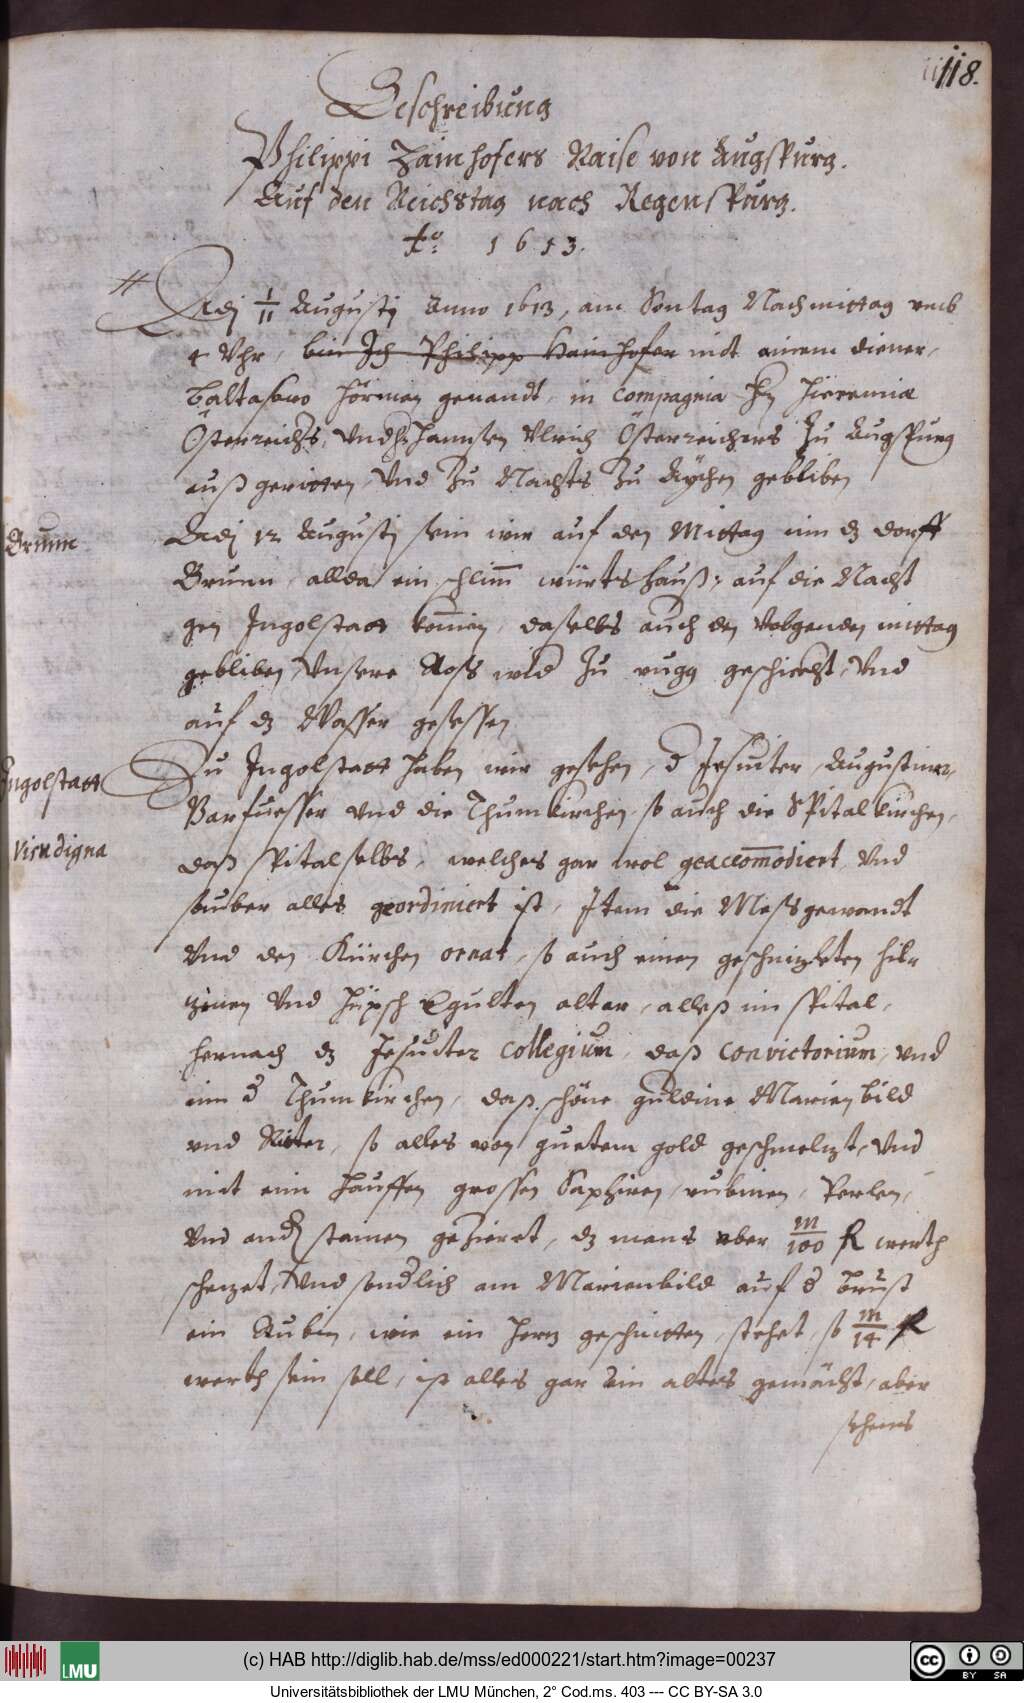 118.
Beschreibung
Philippi Hainhofers Raise von Augspurg.
Auf den Reichstag nach Regenspurg.
Ao: 1613.
Adj 1/11 Augustj Anno 1613, am Sontag Nachmittag vmb
4 Vhr, bin Ich Philipp Hainhofer mit ainem diener,
Baltasaro Hörman genandt, in compagnia Hn Hieremiæ
Österreichers, vnd Hannsen Vlrich Österreichers zu Augspurg
auß geritten, vnd zu Nachts zu Aychen gebliben
Brunn
Adj 12 Augustj sein wir auf den Mittag im dz dorff
Brunn, allda ein schlim würtshauß, auf die Nacht
gen Ingolstatt komen, daselbs auch den volgenden mittag
gebliben, vnsere Ross wid zu rugg geschickht, vnd
auf dz Wasser gesessen
Ingolstatt
Zu Ingolstatt haben wir gesehen, d Jesuiter, Augustiner,
Barfuesser vnd die Thumkirchen, so auch die Spitalkirchen,
Visu digna
daß spital selbs, welches gar wol geaccomodiert vnd
sauber alles geordiniert ist, Item die Messgewandt
vnd den Kürchen ornat, so auch einen geschnizleten hil-
zinen vnd hüpsch vergulten altar, alleß im spital,
hernach dz Jesuiter Collegium, daß Convictorium, vnd
inn d Thumkirchen, daß schöne guldine Marien bild
vnd Ritter, so alles von guetem gold geschmelzt, vnd
mit eim hauffen grossen Saphiren, rubinen, Perlen,
vnd andn stainen gezieret, dz mans vber m/100 fl werth
schezet, vnd sondlich am Marienbild auf d Brust
ein Rubin, wie ein herz geschnitten, stehet, so m/14 fl
werth sein soll, ist alles gar ein altes gemächt, aber
sehens
(c) HAB http://diglib.hab.de/mss/ed000221/start.htm?image=00237
LMU
cc BY SA
Universitätsbibliothek der LMU München, 2° Cod.ms. 403 --- CC BY-SA 3.0